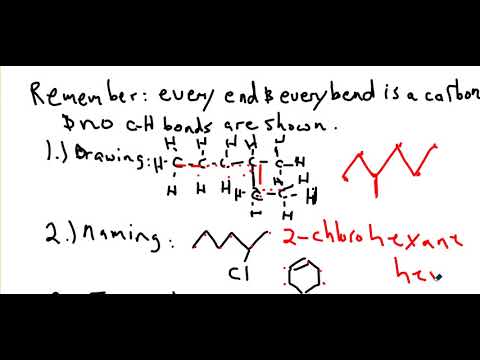 Remember: every end & every bend is a carbon
& no C-H bonds are shown.
1.) Drawing:
H H H H H
H-C-C-C-C-C-C-H
H H H H
H-C-C-H
H H
2.) Naming: 2-chlorohexane
Cl
hex